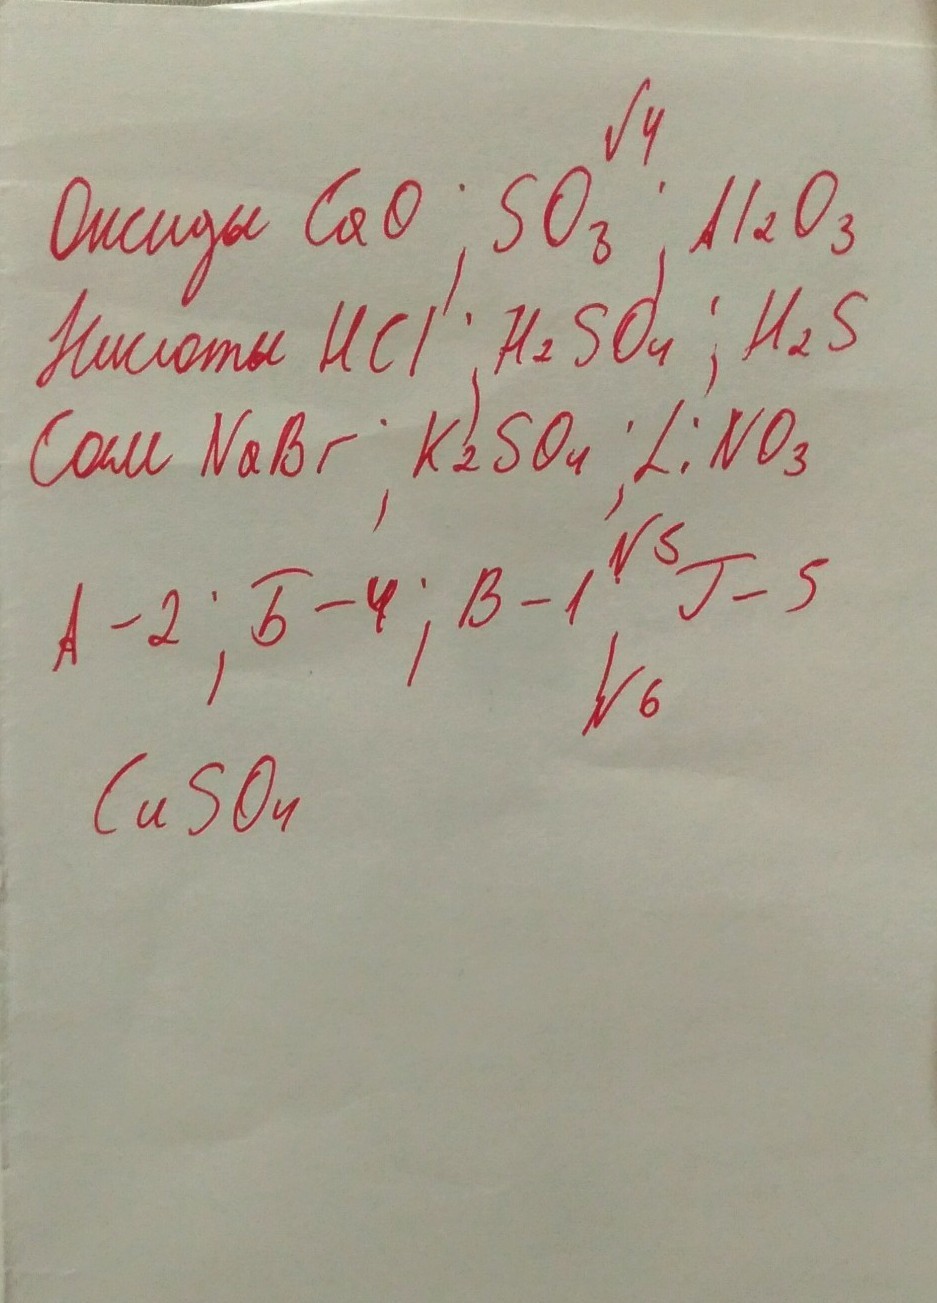 √4
Оксиды CaO ; SO₃ ; Al₂O₃
Кислоты HCl ; H₂SO₄ ; H₂S
Соли NaBr ; K₂SO₄ ; LiNO₃
N5
А – 2 ; Б – 4 ; В – 1 ; Г – 5
N6
CuSO₄